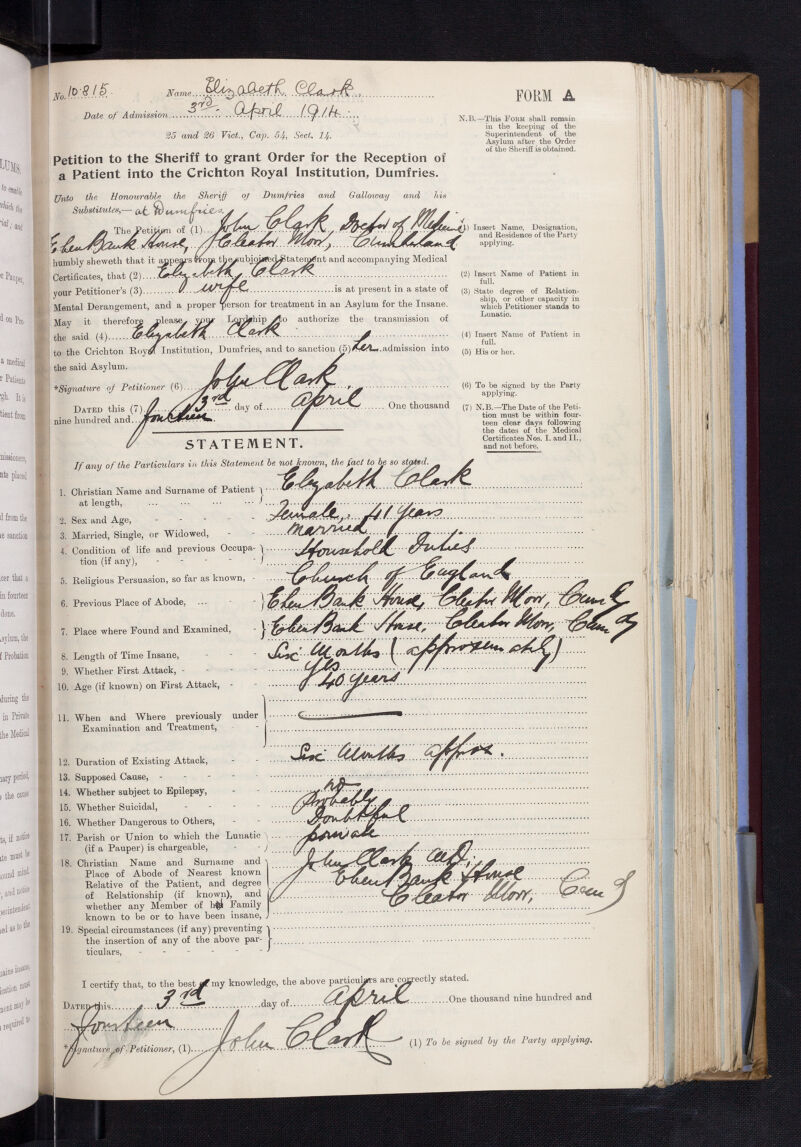 No. 10.815. Name Elizabeth Clark. FORM A
Date of Admission 3rd. April 1914
25 and 26 Vict., Cap. 54, Sect. 14.
N.B.—This Form shall remain
in the keeping of the
Superintendent of the
Asylum after the Order
of the Sheriff is obtained.
Petition to the Sheriff to grant Order for the Reception of
a Patient into the Crichton Royal Institution, Dumfries.
Unto the Honourable the Sheriff of Dumfries and Galloway and his
Substitutes,— at Dumfries
The Petition of (1) John Clark, Doctor of Medicine
Ehen Bank House, Cleator Moor, Cumberland
humbly sheweth that it appears from the subjoined Statement and accompanying Medical
Certificates, that (2) Elizabeth Clark
your Petitioner's (3) wife is at present in a state of
Mental Derangement, and a proper person for treatment in an Asylum for the Insane.
May it therefore please your Lordship to authorize the transmission of
the said (4) Elizabeth Clark
to the Crichton Royal Institution, Dumfries, and to sanction (5) her admission into
the said Asylum.
*Signature of Petitioner (6) John Clark.
Dated this (7) 3rd day of April One thousand
nine hundred and fourteen
(1) Insert Name, Designation,
and Residence of the Party
applying.
(2) Insert Name of Patient in
full.
(3) State degree of Relation-
ship, or other capacity in
which Petitioner stands to
Lunatic.
(4) Insert Name of Patient in
full.
(5) His or her.
(6) To be signed by the Party
applying.
(7) N.B.—The Date of the Peti-
tion must be within four-
teen clear days following
the dates of the Medical
Certificates Nos. I. and II.,
and not before.
STATEMENT.
If any of the Particulars in this Statement be not known, the fact to be so stated.
1. Christian Name and Surname of Patient Elizabeth Clark
at length,
2. Sex and Age, Female, 41 years
3. Married, Single, or Widowed, married
4. Condition of life and previous Occupa- Household Duties
tion (if any),
5. Religious Persuasion, so far as known, Church of England
6. Previous Place of Abode, ... Ehen Bank House, Cleator Moor, Cumb
7. Place where Found and Examined, Ehen Bank House, Cleator Moor, Cum
8. Length of Time Insane, Six Months (approximately)
9. Whether First Attack, yes
10. Age (if known) on First Attack, 40 years
11. When and Where previously under
Examination and Treatment,
12. Duration of Existing Attack, Six Months approx.
13. Supposed Cause,
14. Whether subject to Epilepsy, no
15. Whether Suicidal, Probably
16. Whether Dangerous to Others, Doubtful
17. Parish or Union to which the Lunatic private
(if a Pauper) is chargeable,
18. Christian Name and Surname and John Clark M.D.
Place of Abode of Nearest known Ehen Bank House
Relative of the Patient, and degree Cleator Moor, Cum
of Relationship (if known), and
whether any Member of her Family
known to be or to have been insane,
19. Special circumstances (if any) preventing
the insertion of any of the above par-
ticulars,
I certify that, to the best of my knowledge, the above particulars are correctly stated.
Dated this 3rd day of April One thousand nine hundred and
fourteen
*Signature of Petitioner, (1) John Clark (1) To be signed by the Party applying.